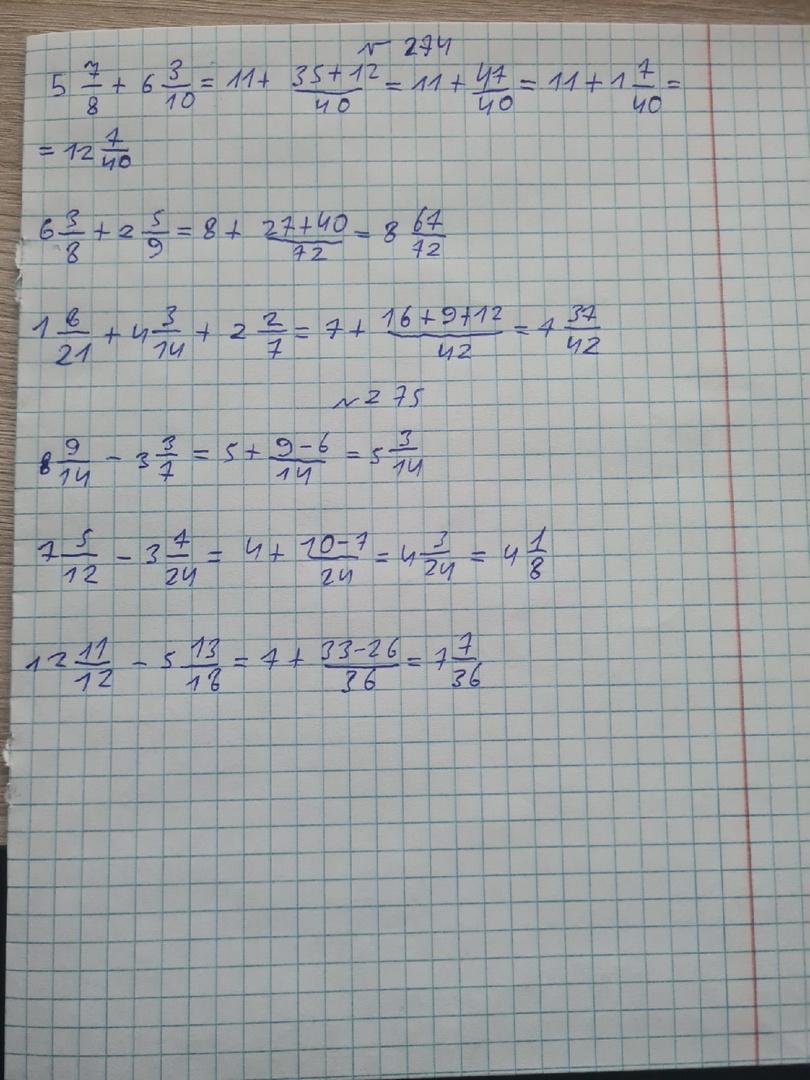 № 274
5 7/8 + 6 3/10 = 11 + (35+12)/40 = 11 + 47/40 = 11 + 1 7/40 =
= 12 7/40
6 3/8 + 2 5/9 = 8 + (27+40)/72 = 8 67/72
1 8/21 + 4 3/14 + 2 2/7 = 7 + (16+9+12)/42 = 7 37/42
№ 275
8 9/14 - 3 3/7 = 5 + (9-6)/14 = 5 3/14
7 5/12 - 3 7/24 = 4 + (10-7)/24 = 4 3/24 = 4 1/8
12 11/12 - 5 13/18 = 7 + (33-26)/36 = 7 7/36